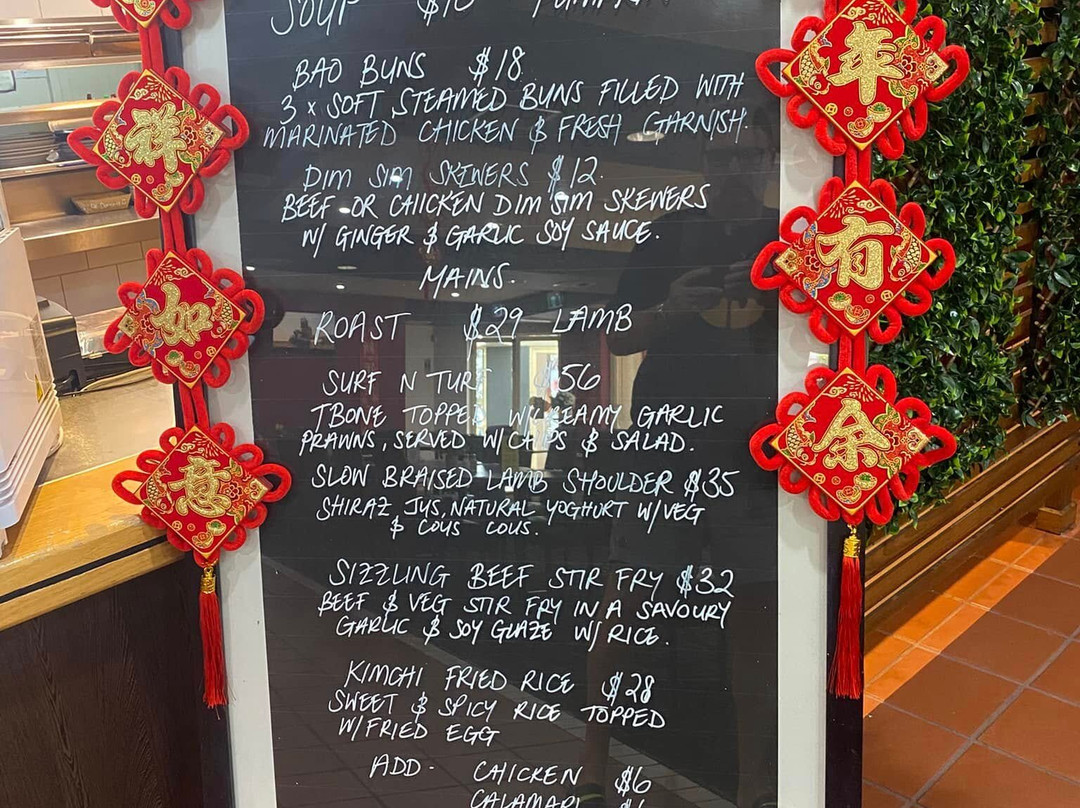 SOUP $10 PUMPKIN
BAO BUNS $18
3 x SOFT STEAMED BUNS FILLED WITH
MARINATED CHICKEN & FRESH GARNISH.
DIM SIM SKEWERS $12.
BEEF OR CHICKEN DIM SIM SKEWERS
W/ GINGER & GARLIC SOY SAUCE.
MAINS.
ROAST $29 LAMB
SURF N TURF $56
TBONE TOPPED W/ CREAMY GARLIC
PRAWNS, SERVED W/ CHIPS & SALAD.
SLOW BRAISED LAMB SHOULDER $35
SHIRAZ JUS, NATURAL YOGHURT W/VEG
& COUS COUS.
SIZZLING BEEF STIR FRY $32
BEEF & VEG STIR FRY IN A SAVOURY
GARLIC & SOY GLAZE W/ RICE.
KIMCHI FRIED RICE $28
SWEET & SPICY RICE TOPPED
W/ FRIED EGG
ADD - CHICKEN $6
CALAMARI $6
祥
如
意
年
有
余